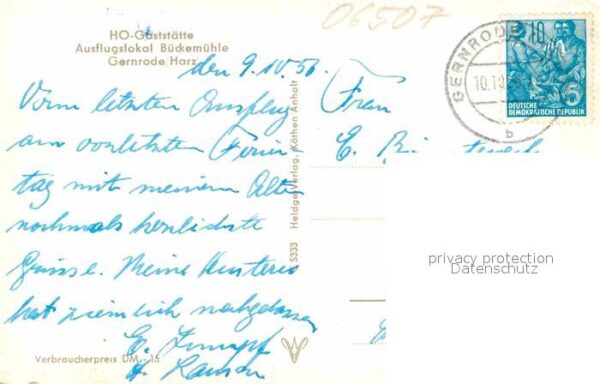 06507
HO-Gaststätte
Ausflugslokal Bückemühle
Gernrode/Harz
den 9.10.56
Vom letzten Ausflug
am vorletzten Feier
tag mit meinem Alten
nochmals herzlichste
Grüsse. Meine Husterei
hat ziemlich nachgelassen
E.
Verbraucherpreis DM -.15
5333 Heldge-Verlag, Köthen-Anhalt
Frau
E.
GERNRODE
10.10
b
10
5
DEUTSCHE
DEMOKRATISCHE REPUBLIK
privacy protection
Datenschutz